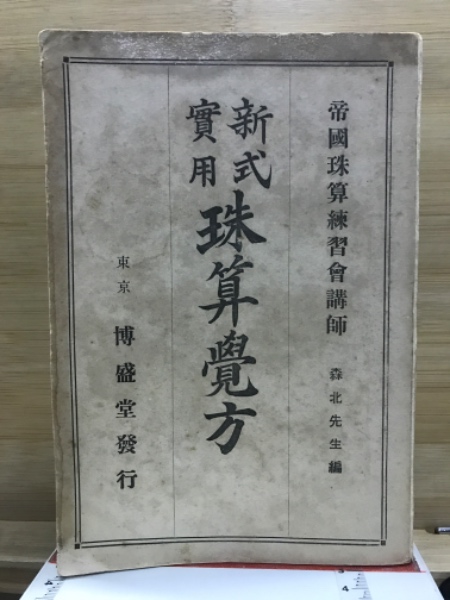 帝國珠算練習會講師 森北先生編
新式
實用
珠算覺方
東京 博盛堂發行